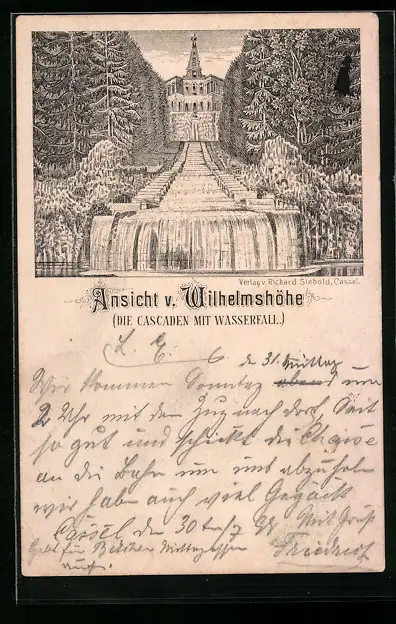 Verlag v. Richard Siebold, Cassel.
Ansicht v. Wilhelmshöhe
(DIE CASCADEN MIT WASSERFALL.)
L. E. d 31. Mittag
Wir kommen Sonntag abend um
2 Uhr mit dem Zug nach dort, Seit
so gut und schickt die Chaise
an die Bahn um uns abzuholen
wir haben auch viel Gepäck
Cassel den 30ten/7 Mit Gruß
Friedrich
Mittagessen
auf.